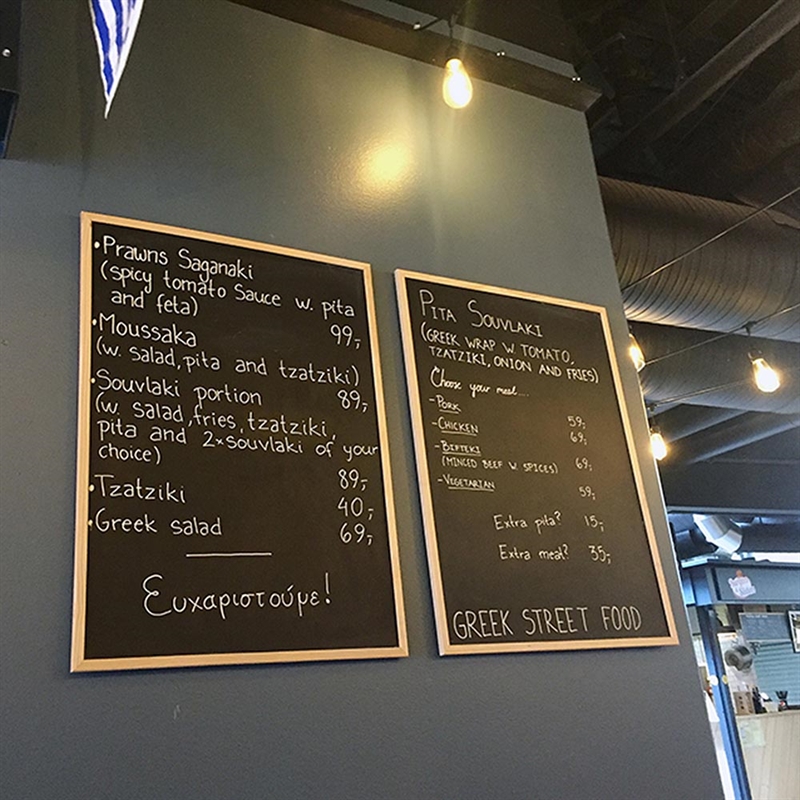 •Prawns Saganaki
(spicy tomato Sauce w. pita
and feta) 99,-
•Moussaka
(w. salad, pita and tzatziki)
89,-
•Souvlaki portion
(w. salad, fries, tzatziki,
pita and 2xsouvlaki of your
choice) 89,-
•Tzatziki 40,-
•Greek salad 69,-
Ευχαριστούμε!
PITA SOUVLAKI
(GREEK WRAP W. TOMATO,
TZATZIKI, ONION AND FRIES)
Choose your meat...
-PORK 59,-
-CHICKEN 69,-
-BIFTEKI
(MINCED BEEF W. SPICES) 69,-
-VEGETARIAN 59,-
Extra pita? 15,-
Extra meat? 35,-
GREEK STREET FOOD